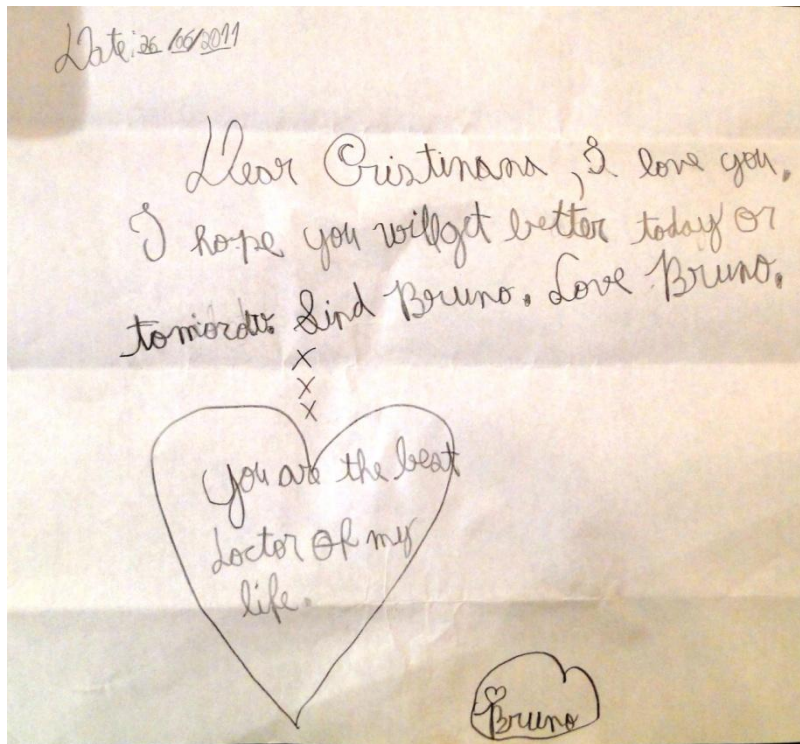 Date: 26/06/2011
Dear Cristinana, I love you.
I hope you will get better today or
tomordw. Sind Bruno. Love Bruno.
x
x
x
You are the best
doctor of my
life.
Bruno